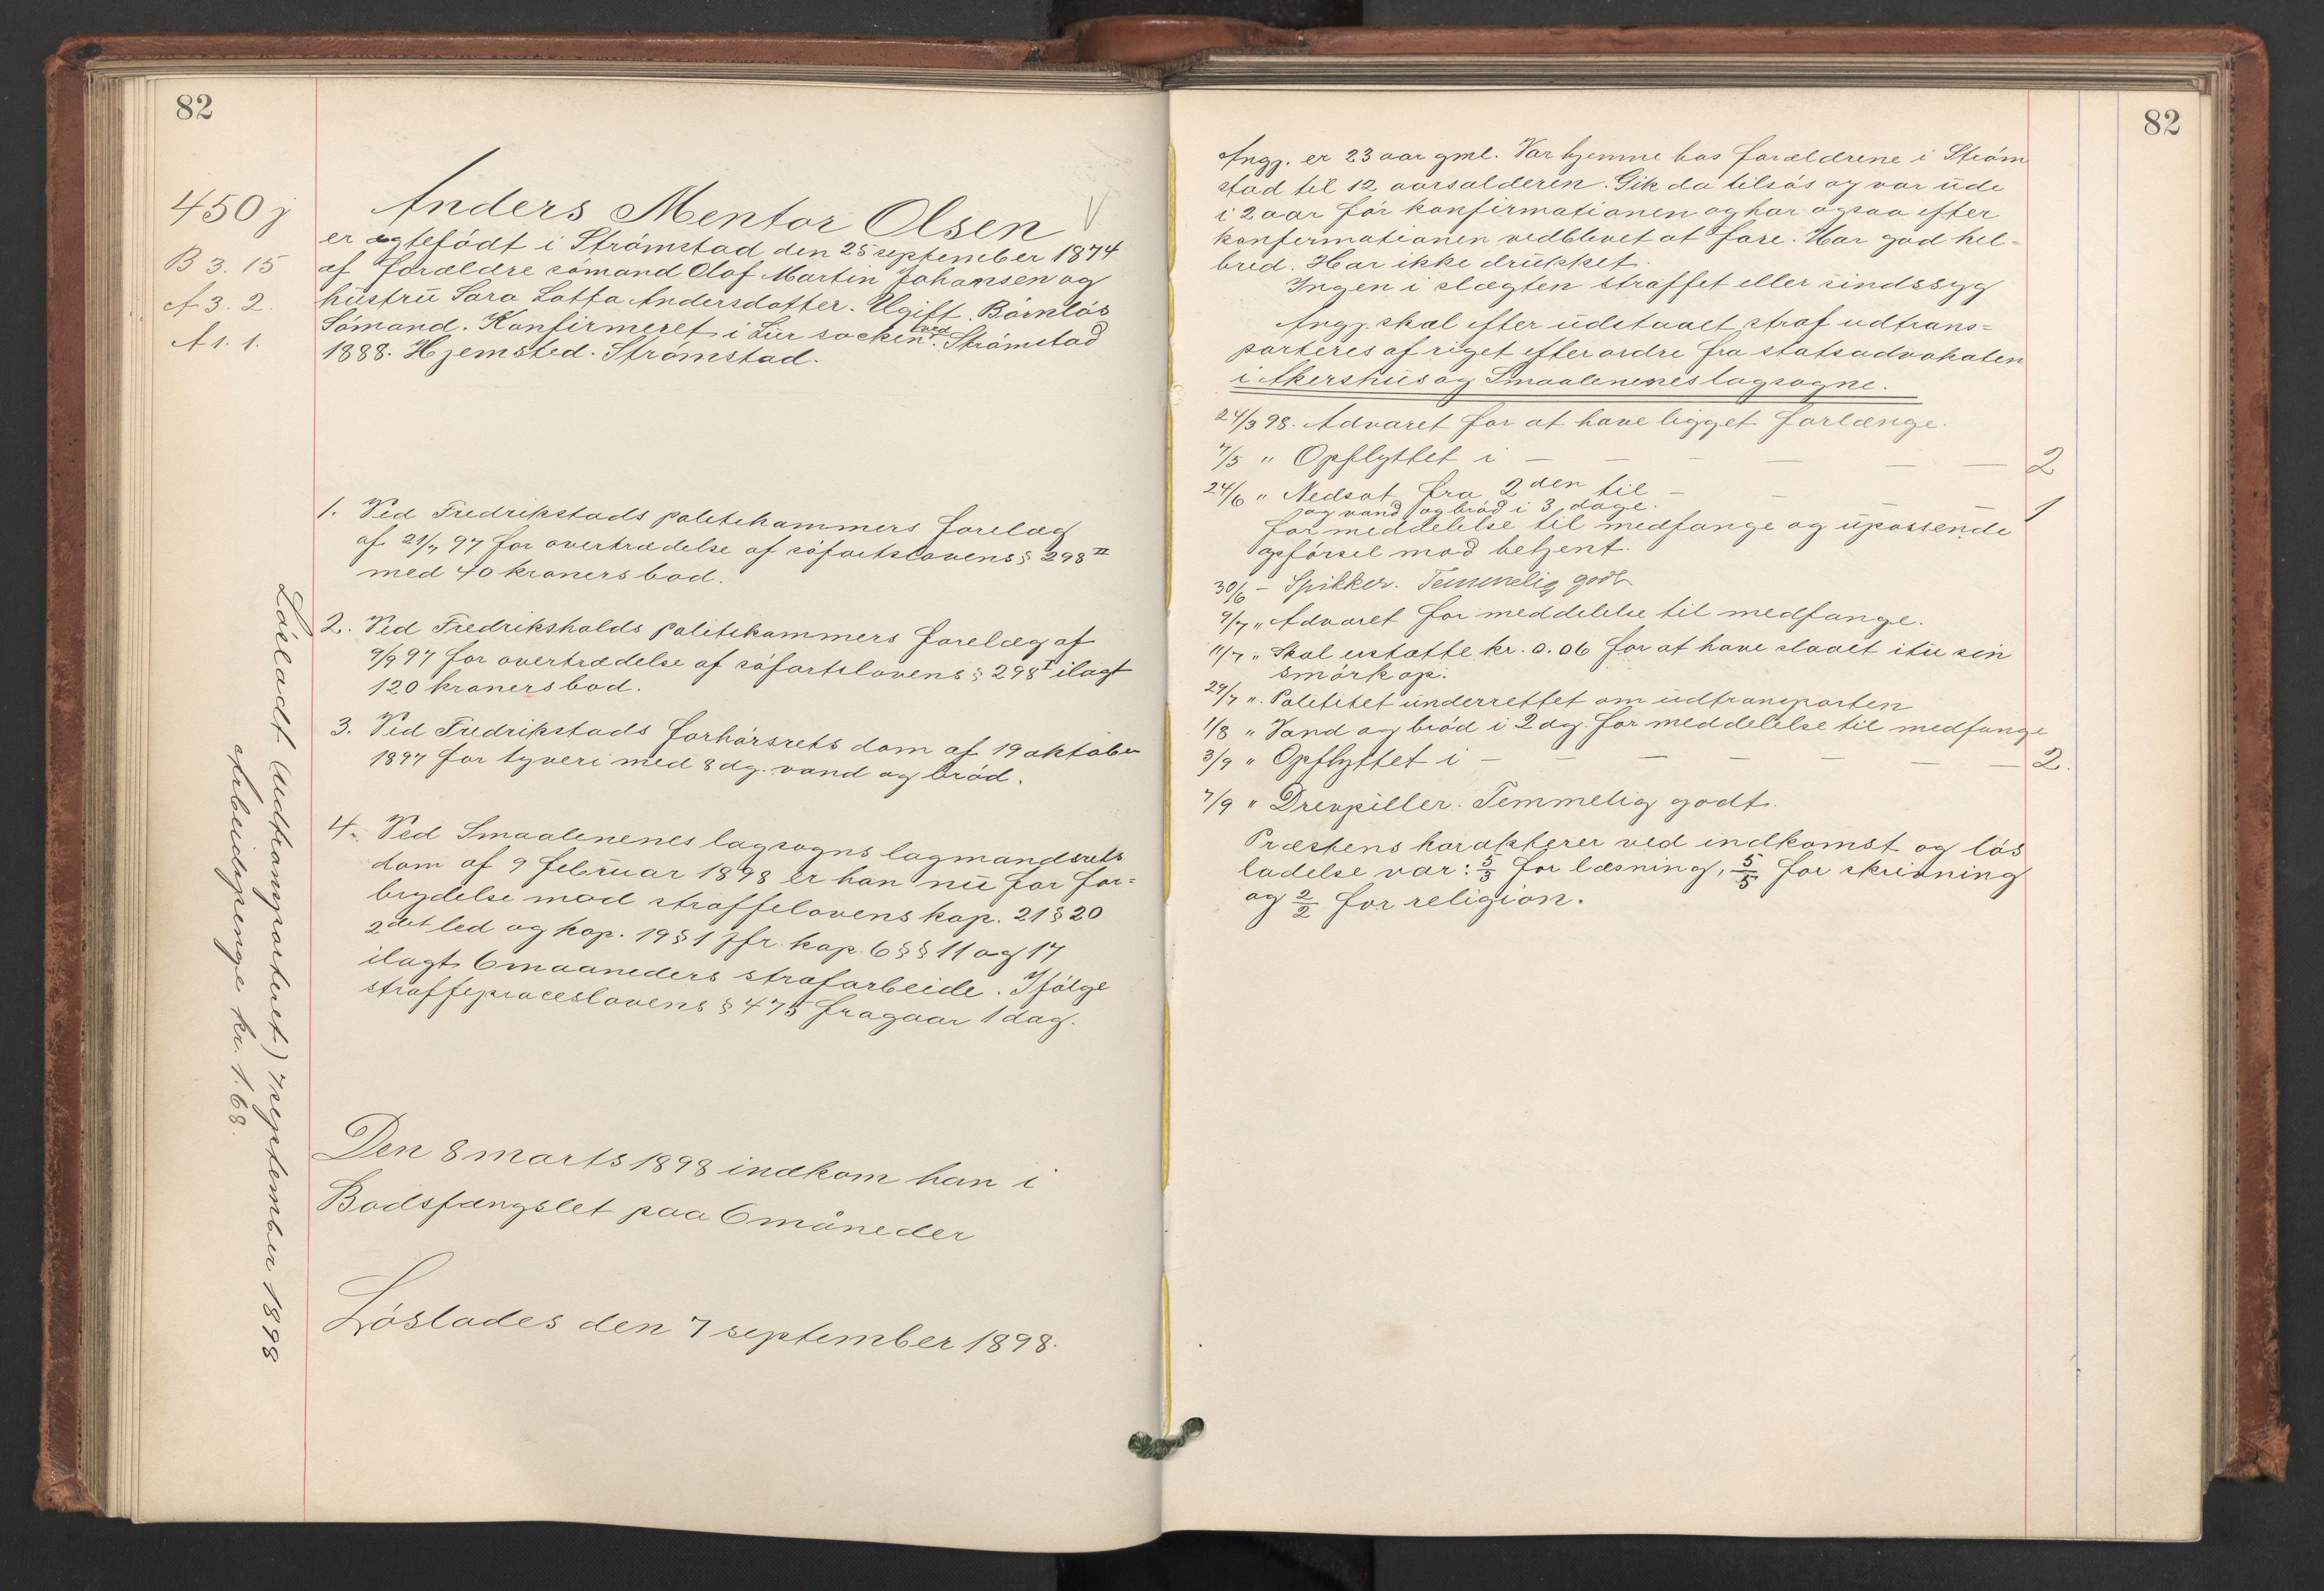 82
450 j
B 3. 15
A 3. 2.
A 1. 1.
Anders Mentor Olsen
er ægtefödt i Strömstad den 25 september 1874
af forældre sömand Olof Martin Johansen og
hustru Sara Lotta Andersdatter. Ugift. Börnlös
Sömand. Konfirmeret i Lur socken ved Strömstad
1888. Hjemsted. Strömstad.
1. Ved Fredrikstads politikammers forelæg
af 21/7 97 for overtrædelse af söfartslovens § 298 II
med 40 kroners bod.
2. Ved Fredrikshalds politikammers forelæg af
9/9 97 for overtrædelse af söfartslovens § 298 I ilagt
120 kroners bod.
3. Ved Fredrikstads forhörsrets dom af 19 oktober
1897 for tyveri med 8 dg. vand og bröd.
4. Ved Smaalenenes lagsogns lagmandsrets
dom af 9 februar 1898 er han nu for for-
brydelse mod straffelovens kap. 21 § 20
2det led og kap. 19 § 1 jfr. kap. 6 §§ 11 og 17
ilagt 6 maaneders strafarbeide. Ifölge
straffeproceslovens § 475 fragaar 1 dag.
Den 8 marts 1898 indkom han i
Bodsfængslet paa 6 måneder
Löslades den 7 september 1898.
Lösladt (Udtransporteret) 7 september 1898
Arbeidspenge kr. 1.68.
82
Angj. er 23 aar gml. Var hjemme hos forældrene i Ström
stad til 12 aarsalderen. Gik da tilsös og var ude
i 2 aar för konfirmationen og har ogsaa efter
konfirmationen vedblevet at fare. Har god hel-
bred. Har ikke drukket.
Ingen i slægten straffet eller sindssyg
Angj. skal efter udstaaet straf udtrans-
porteres af riget efter ordre fra statsadvokaten
i Akershus og Smaalenenes lagsogne.
24/3 98. Advaret for at have ligget forlænge.
7/5 " Opflyttet i — — — — — — 2
24/6 " Nedsat fra 2den til — — — — 1
og vand og bröd i 3 dage.
for meddelelse til medfange og upassende
opförsel mod betjent.
30/6 - Spikker. Temmelig godt
9/7 " Advaret for meddelelse til medfange.
11/7 " Skal erstatte kr. 0.06 for at have slaaet itu sin
smörkop.
29/7 ". Politiet underrettet om udtransporten
1/8 " Vand og bröd i 2 dg. for meddelelse til medfange
3/9 " Opflyttet i — — — — — — — 2.
7/9 " Drevpiller. Temmelig godt.
Præstens karakterer ved indkomst og lös
ladelse var: 5/5 for læsning, 5/5 for skrivning
og 2/2 for religion.